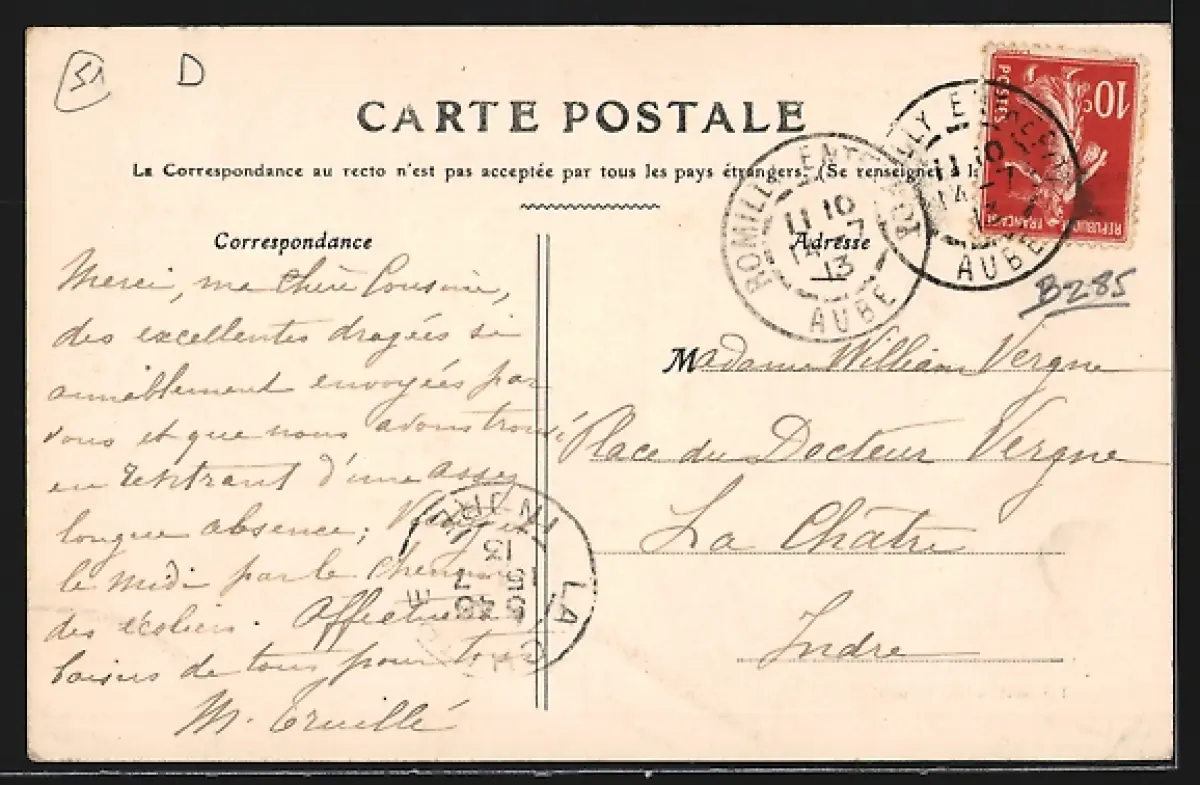 51 D
CARTE POSTALE
La Correspondance au recto n'est pas acceptée par tous les pays étrangers. (Se renseigner à la
Correspondance
Adresse
10c
POSTES
REPUBLIQUE FRANÇAISE
ROMILLY
11 10
14 - 7
13
AUBE
ROMILLY
11 10
14 - 7
13
AUBE
B285
Merci, ma chère Cousine,
des excellentes dragées si
aimablement envoyées par
vous et que nous avons trouvé
en rentrant d'une assez
longue absence;
le midi par le
des écoliers. Affectueux
baisers de tous pour tous
M.
Madame William Vergne
Place du Docteur Vergne
La Châtre
Indre
LA CHATRE
INDRE
5 40
15 7
13